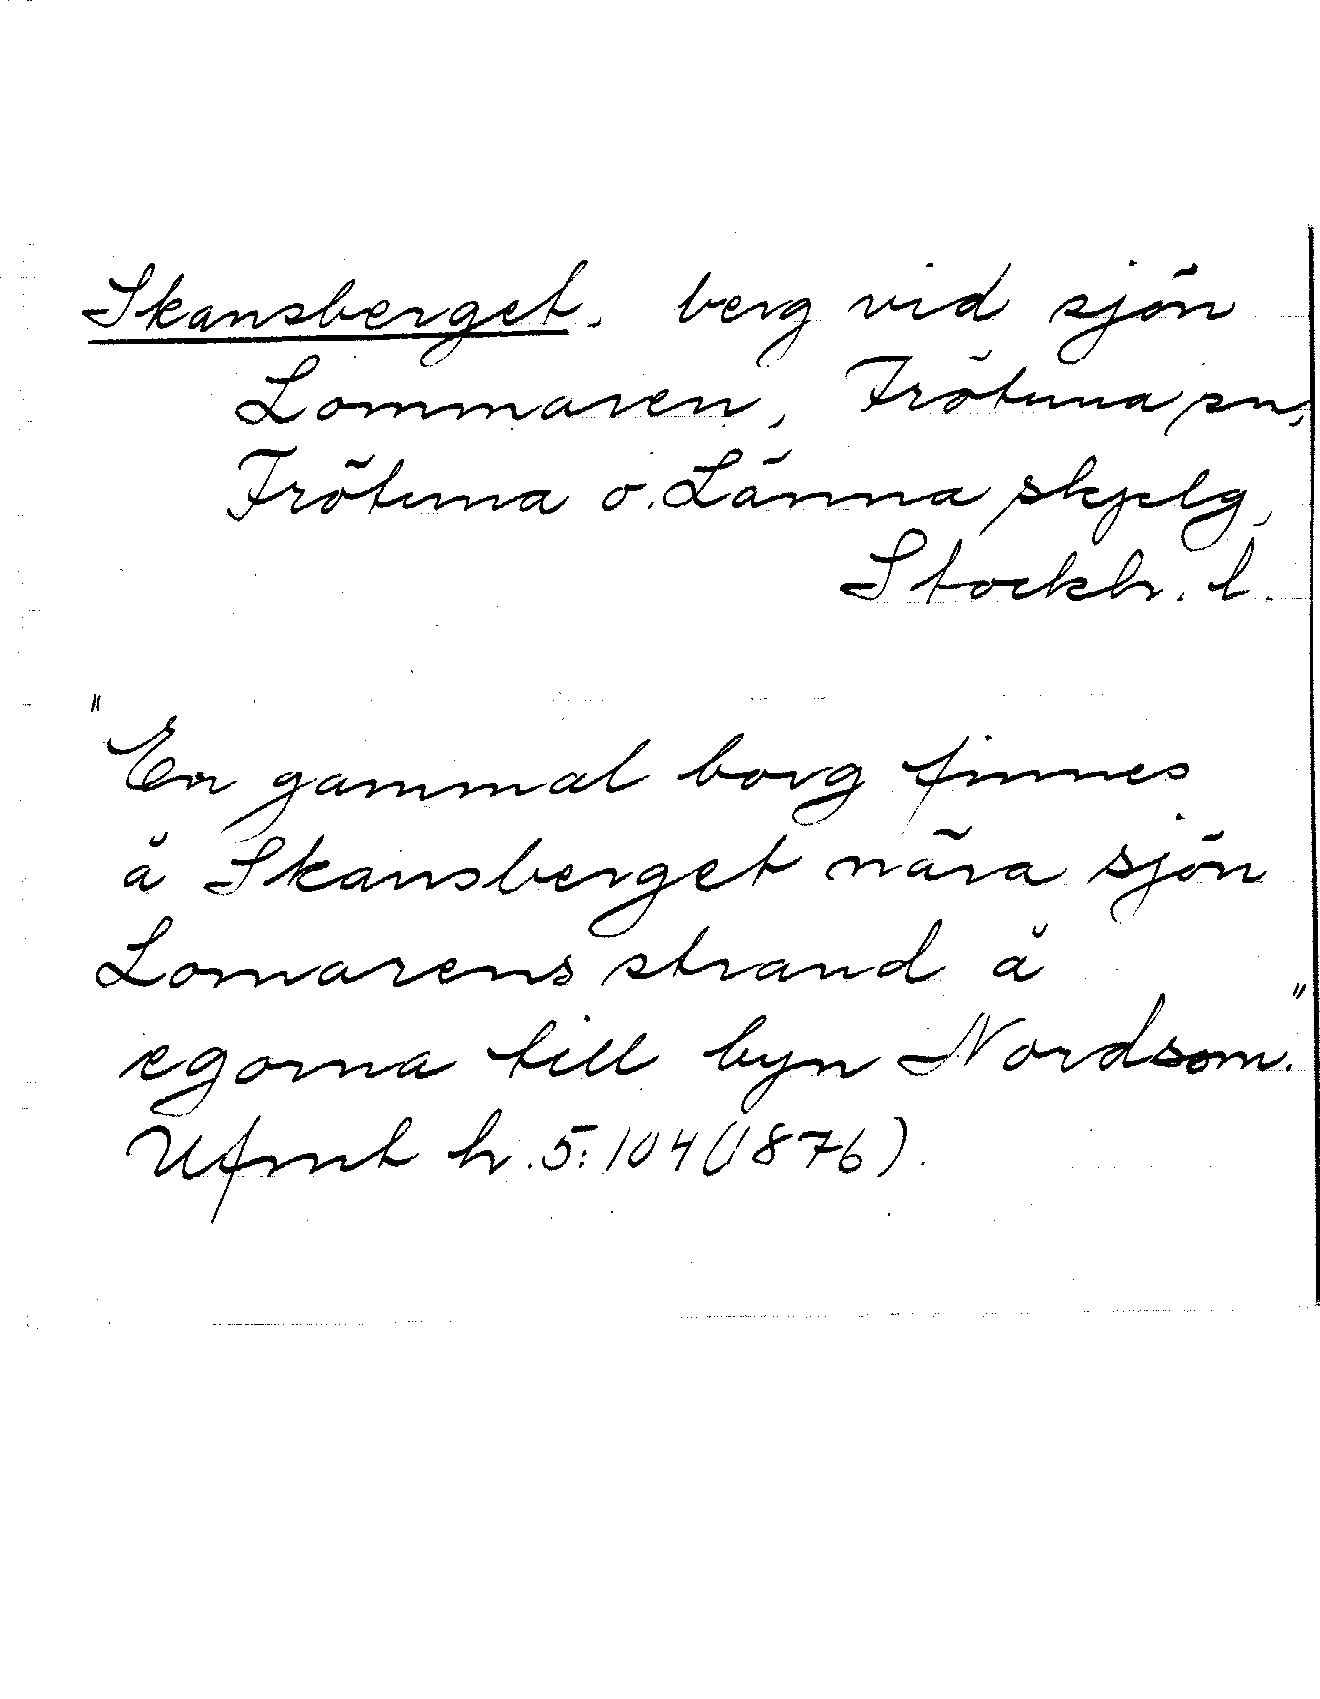 Skansberget. berg vid sjön
Lommaren, Frötuna sn,
Frötuna o. Länna skplg,
Stockh. l.
"En gammal borg finnes
å Skansberget nära sjön
Lomarens strand å
egorna till byn Nordsom."
Ufmt h. 5:104 (1876).